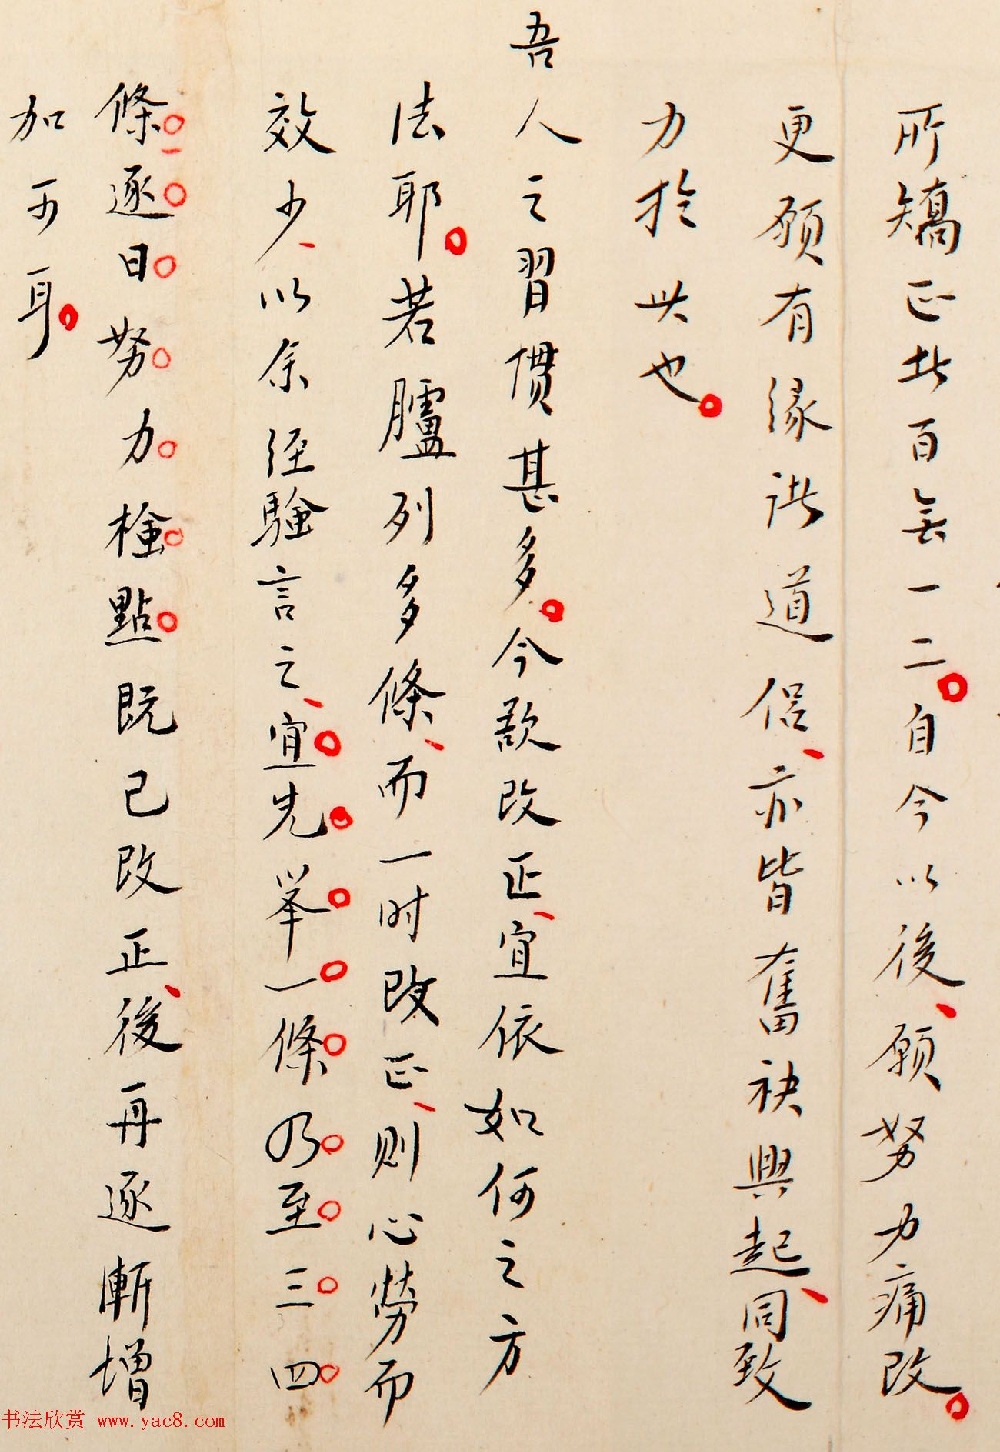 所矯正此百無一二。自今以後、願努力痛改。
更願有緣諸道侶、亦皆奮袂興起、同致
力於此也。
吾人之習慣甚多。今欲改正、宜依如何之方
法耶。若臚列多條、而一时改正、則心勞而
效少、以余經驗言之、宜先舉一條乃至三四
條逐日努力檢點既已改正、後再逐漸增
加可耳。
书法欣赏 www.yac8.com